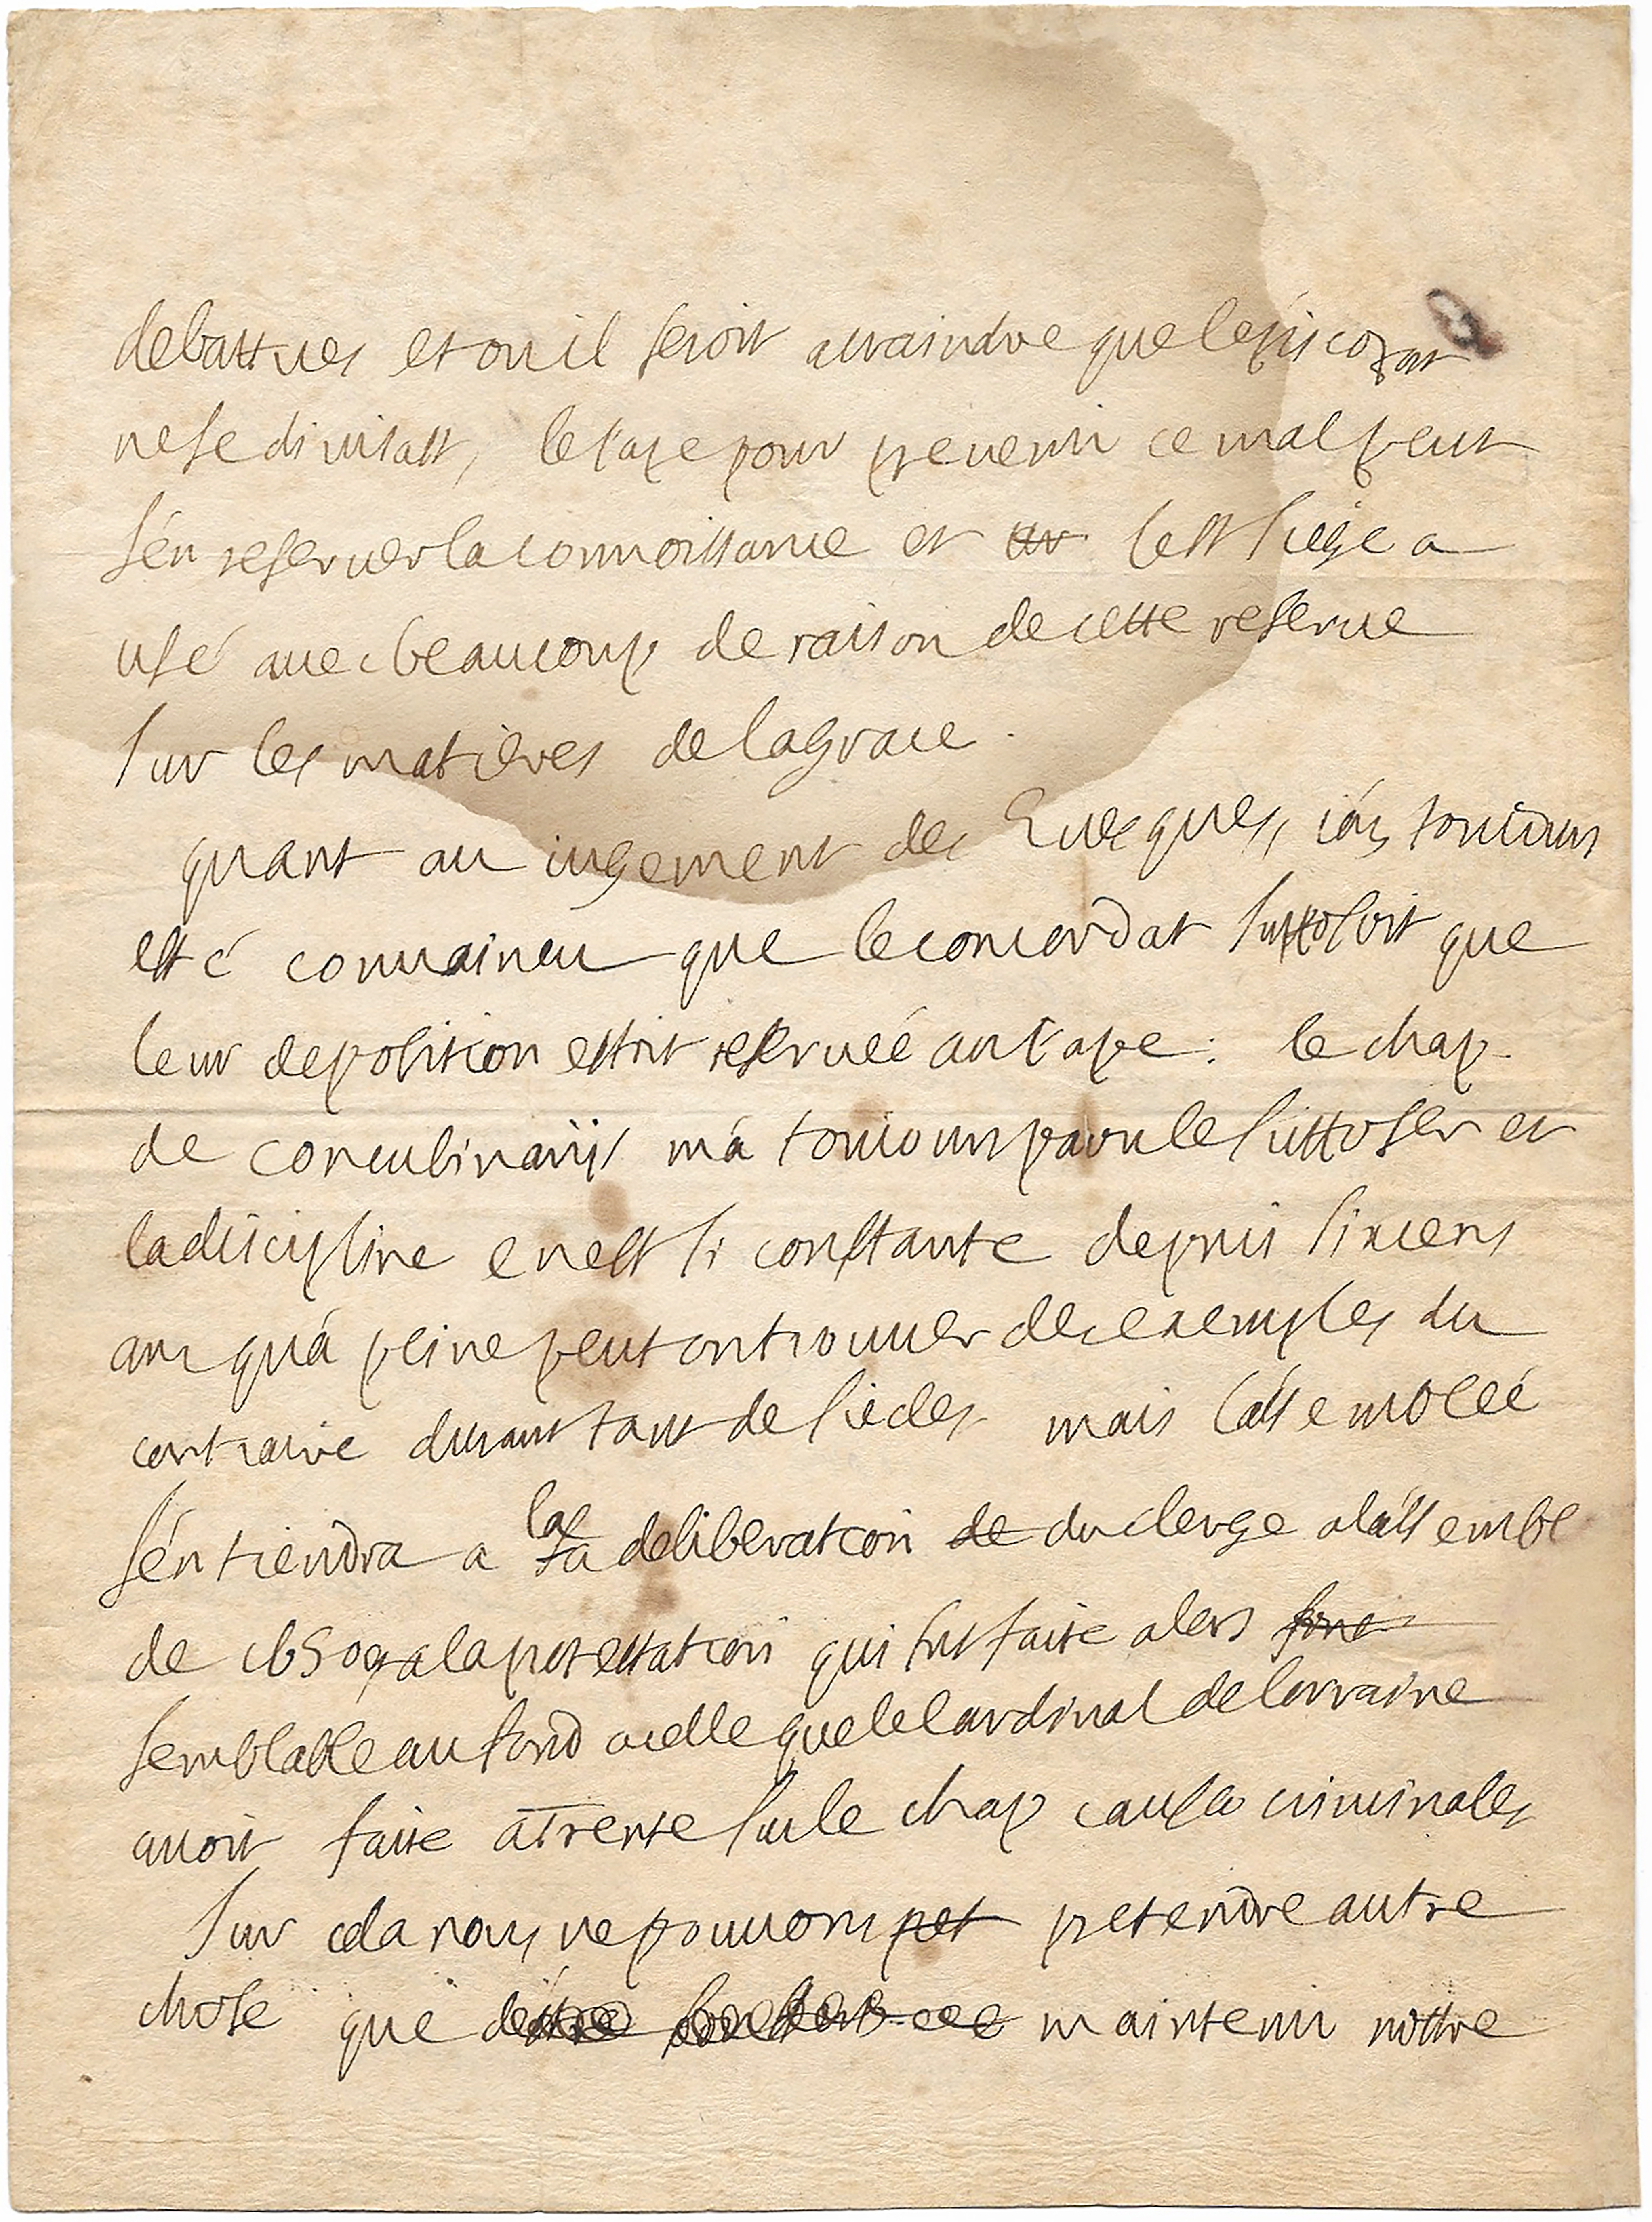 debattues et ou il seroit a craindre que lepiscopat
ne se divisast, le Pape pour prevenir ce mal peut
s'en reserver la connoissance et le st siege a
usé avec beaucoup de raison de cette reserve
sur les matieres de la grace.
quant au iugement des Evesques, i'ay touiours
esté convaincu que le concordat supposoit que
leur deposition estoit reservée au Pape: le chap.
de concubinariis m'a touiours paru le supposer et
la discipline en est si constante depuis six cens
ans qu'à peine peut on trouver des exemples du
contraire durant tant de siecles mais l'assemblée
s'en tiendra a la deliberation du clerge a l'assemble
de 1650 et a la protestation qui fut faite alors
semblable au fond a celle que le Cardinal de lorraine
avoit faite a Trente sur le chap causae criminales
sur cela nous ne pouvons pretendre autre
chose que maintenir nostre